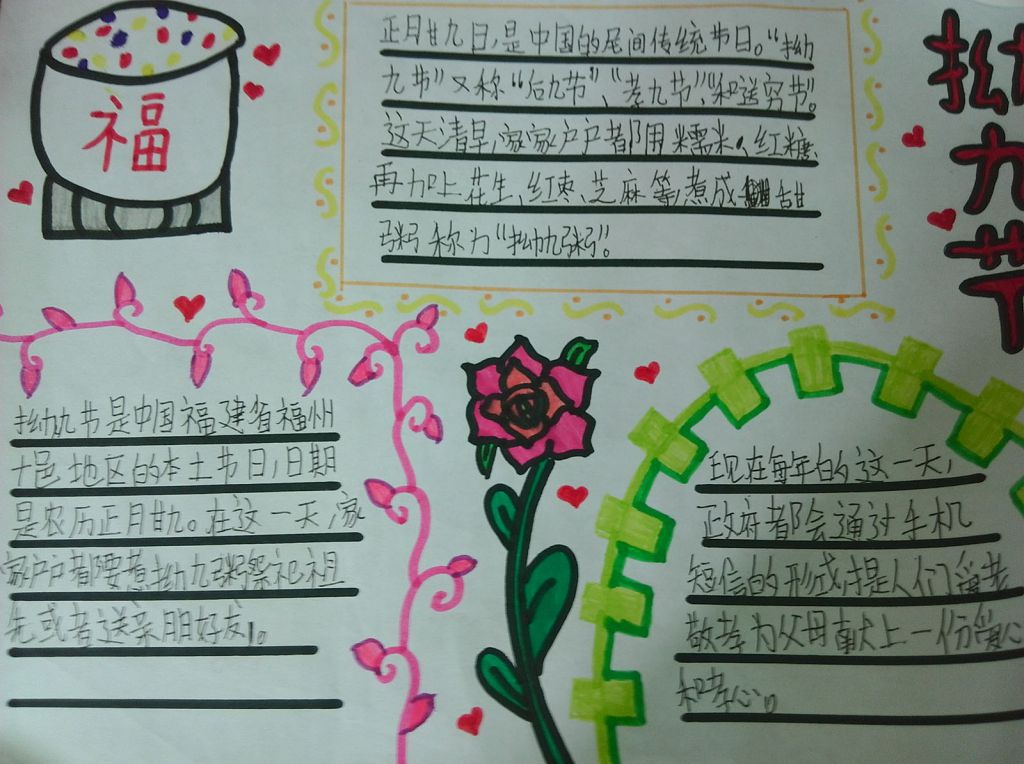 福
正月廿九日,是中国的民间传统节日。“拗
九节”又称“后九节”、“孝九节”,“和送穷节”。
这天清早,家家户户都用糯米、红糖、
再加上花生、红枣、芝麻等,煮成甜
粥称为“拗九粥”。
拗九节
拗九节是中国福建省福州
十邑地区的本土节日,日期
是农历正月廿九。在这一天,家
家户户都要煮拗九粥祭祀祖
先或者送亲朋好友。
现在每年的这一天,
政府都会通过手机
短信的形式提人们
敬孝为父母献上一份爱心
和孝心。